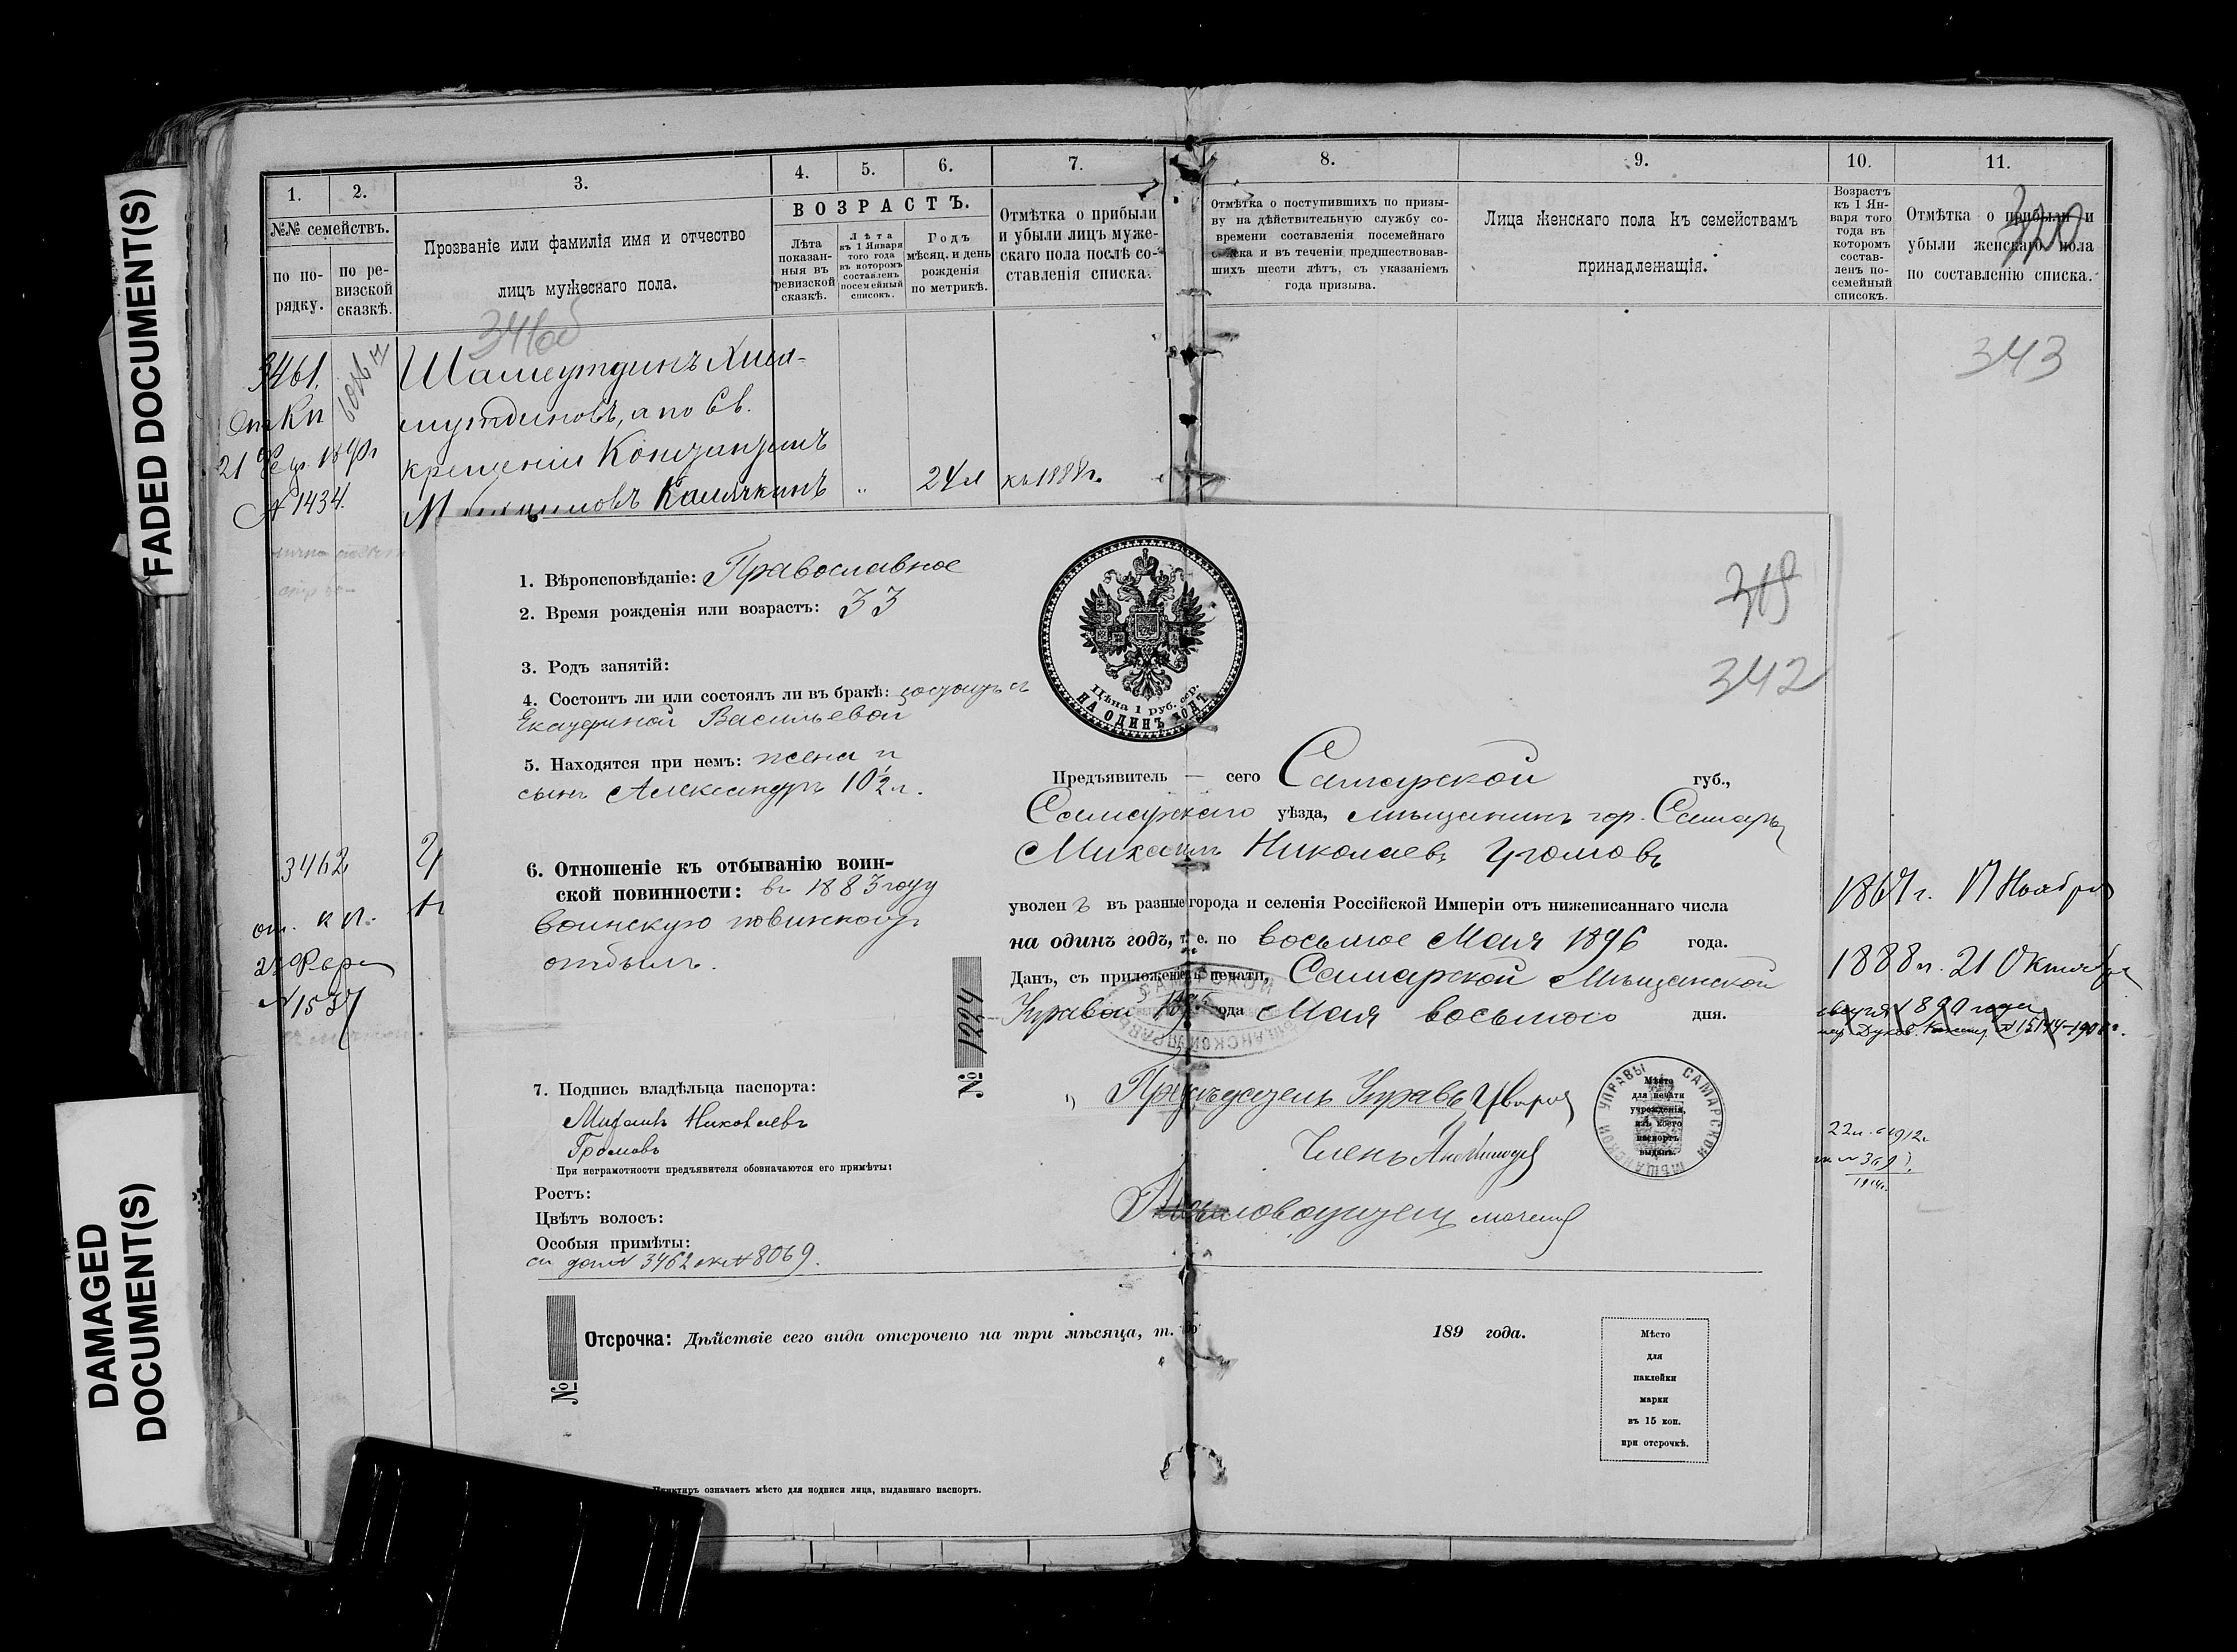 FADED DOCUMENT(S)
DAMAGED
DOCUMENT(S)
1.
2.
3.
4.
5.
6.
7.
№№ семействъ.
по по-
рядку.
по ре-
визской
сказкѣ.
Прозваніе или фамилія имя и отчество
лицъ мужескаго пола.
ВОЗРАСТЪ.
Лѣта
показан-
ныя въ
ревизской
сказкѣ.
Лѣта
къ 1 Января
того года
въ которомъ
составленъ
посемейный
списокъ.
Годъ
мѣсяц. и день
рожденія
по метрикѣ.
Отмѣтка о прибыли
и убыли лицъ муже-
скаго пола послѣ со-
ставленія списка.
8.
9.
10.
11.
Отмѣтка о поступившихъ по призы-
ву на дѣйствительную службу со-
времени составленія посемейнаго
списка и въ теченіи предшествовав-
шихъ шести лѣтъ, съ указаніемъ
года призыва.
Лица женскаго пола къ семействамъ
принадлежащія.
Возрастъ
къ 1 Ян-
варя того
года въ
которомъ
состав-
ленъ по-
семейный
списокъ.
Отмѣтка о прибыли и
убыли женскаго пола
по составленію списка.
343
346об
3461.
Шамеутдинъ Хиса-
мутдиновъ, а по Св.
крещенію Константинъ
Михаиловъ Калячкинъ
24 л
къ 1888 г.
№ 1434.
1. Вѣроисповѣданіе: Православное
2. Время рожденія или возрастъ: 33
3. Родъ занятій:
4. Состоитъ ли или состоялъ ли въ бракѣ: состоитъ съ
Екатериной Васильевой
5. Находятся при немъ: жена и
сынъ Александръ 10½ л.
6. Отношеніе къ отбыванію воин-
ской повинности: въ 1883 году
воинскую повинность
отбылъ.
7. Подпись владѣльца паспорта:
Михаилъ Николаевъ
Громовъ
При неграмотности предъявителя обозначаются его примѣты:
Ростъ:
Цвѣтъ волосъ:
Особыя примѣты:
3462 № 8069.
Цѣна 1 руб. сер.
НА ОДИНЪ ГОДЪ
319
342
Предъявитель — сего Самарской губ.,
Самарскаго уѣзда, мѣщанинъ гор. Самары
Михаилъ Николаевъ Громовъ
уволенъ въ разные города и селенія Россійской Имперіи отъ нижеписаннаго числа
на одинъ годъ, т. е. по восьмое Мая 1896 года.
Данъ, съ приложеніемъ печати, Самарской Мѣщанской
Управой 1895 года Мая восьмого дня.
№ 1224
Предсѣдатель Управы
Членъ
САМАРСКОЙ МѢЩАНСКОЙ УПРАВЫ
Мѣсто
для печати
учрежденія,
изъ коего
паспортъ
выданъ.
3462
№ 1537
1867 г. 17 Ноября
1888 г. 21 Октября
№
Отсрочка: Дѣйствіе сего вида отсрочено на три мѣсяца, т. е. по 189 года.
Мѣсто
для
наклейки
марки
въ 15 коп.
при отсрочкѣ.
Пунктиръ означаетъ мѣсто для подписи лица, выдавшаго паспортъ.